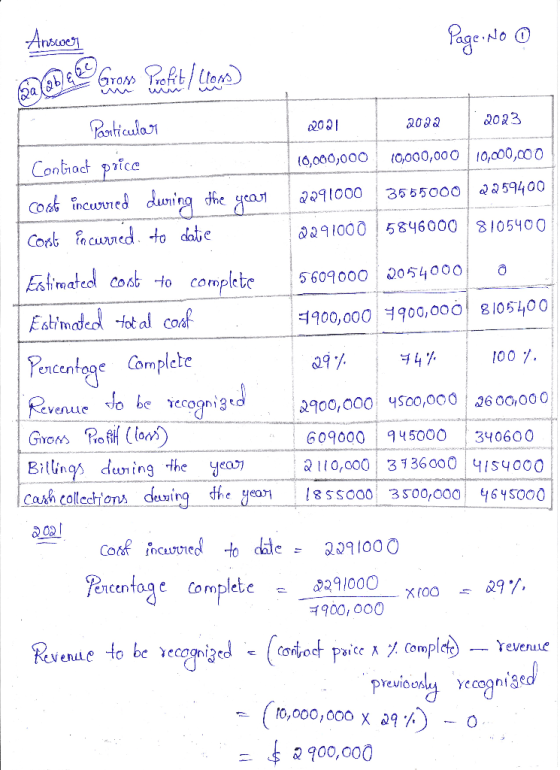 Answer
Page.No ①
2a 2b & 2c Gross Profit/(loss)
Particular 2021 2022 2023
Contract price 10,000,000 10,000,000 10,000,000
Cost incurred during the year 2291000 3555000 2259400
Cost incurred. to date 2291000 5846000 8105400
Estimated cost to complete 5609000 2054000 0
Estimated total cost 7900,000 7900,000 8105400
Percentage Complete 29% 74% 100%
Revenue to be recognized 2900,000 4500,000 2600,000
Gross Profit (loss) 609000 945000 340600
Billings during the year 2110,000 3736000 4154000
Cash collections during the year 1855000 3500,000 4645000
2021
Cost incurred to date = 2291000
Percentage complete = 2291000 / 7900,000 X100 = 29%.
Revenue to be recognized = (contract price x % complete) – revenue
previously recognized
= (10,000,000 X 29%) – 0
= $ 2900,000